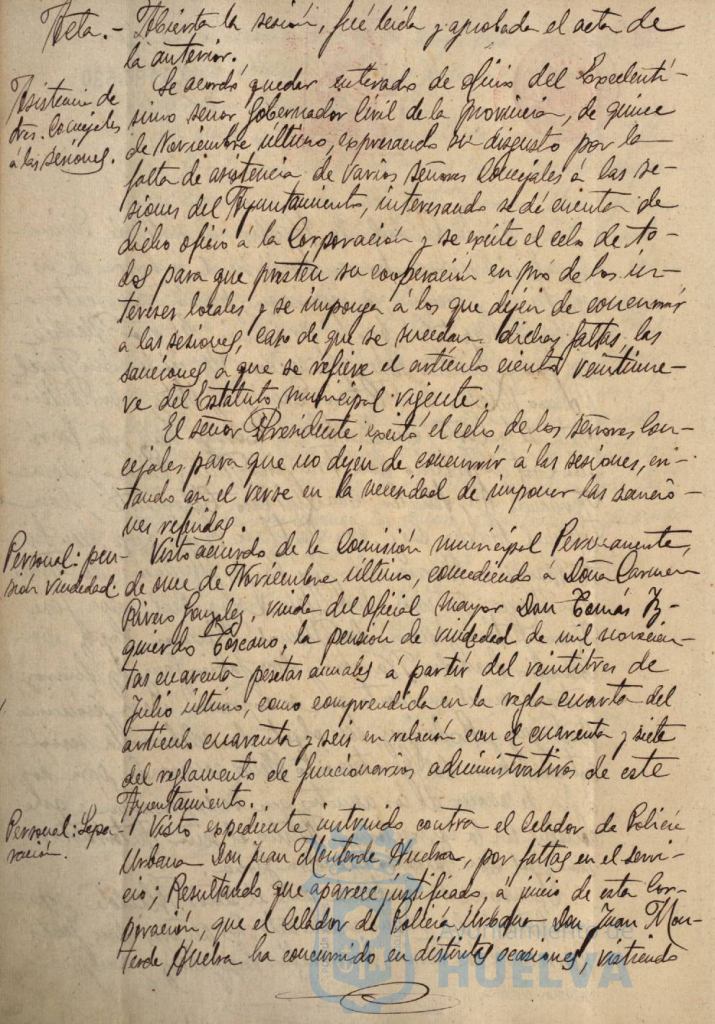 Acta.- Abierta la sesión, fué leida y aprobada el acta de
la anterior.
Asistencia de
tres. Concejales
á las sesiones.
Se acordó quedar enterado de oficio del Excelentí-
simo señor Gobernador Civil de la provincia, de quince
de Noviembre último, expresando su disgusto por la
falta de asistencia de varios señores Concejales á las se-
siones del Ayuntamiento, interesando se dé cuenta de
dicho oficio á la Corporación y se excite el celo de to-
dos para que presten su cooperación en pró de los in-
tereses locales y se imponga á los que dejen de concurrir
á las sesiones, caso de que se sucedan dichas faltas, las
sanciones á que se refiere el artículo ciento veintinue-
ve del Estatuto municipal vigente.
El señor Presidente excitó el celo de los señores Con-
cejales para que no dejen de concurrir á las sesiones, evi-
tando así el verse en la necesidad de imponer las sancio-
nes referidas.
Personal: pen-
sión viudedad.
Visto acuerdo de la Comisión municipal Permanente,
de once de Noviembre último, concediendo á Doña Carmen
Rivas González, viuda del Oficial mayor Don Tomás Iz-
quierdo Toscano, la pensión de viudedad de mil novecien-
tas cuarenta pesetas anuales á partir del veintitres de
Julio último, como comprendida en la regla cuarta del
artículo cuarenta y seis en relación con el cuarenta y siete
del reglamento de funcionarios administrativos de este
Ayuntamiento.
Personal: Sepa-
ración.
Visto expediente instruido contra el Celador de Policía
Urbana Don Juan Monterde Huelva, por faltas en el servi-
cio; Resultando que aparece justificado, á juicio de esta Cor-
poración, que el Celador de Policía Urbana Don Juan Mon-
terde Huelva ha concurrido en distintas ocasiones, vistiendo
HUELVA